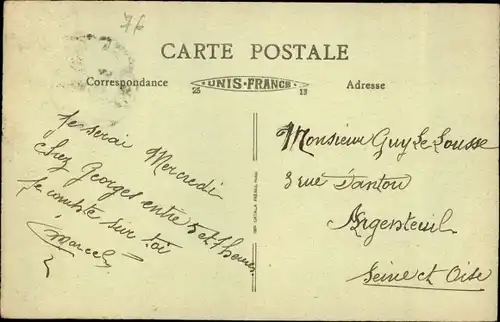 76
CARTE POSTALE
Correspondance
UNIS-FRANCE
25 13
Adresse
Je serai Mercredi
chez Georges entre 5 et 7 heures
Je compte sur toi
Marcel
Monsieur Guy Le Lousse
3 rue Danton
Argenteuil
Seine et Oise